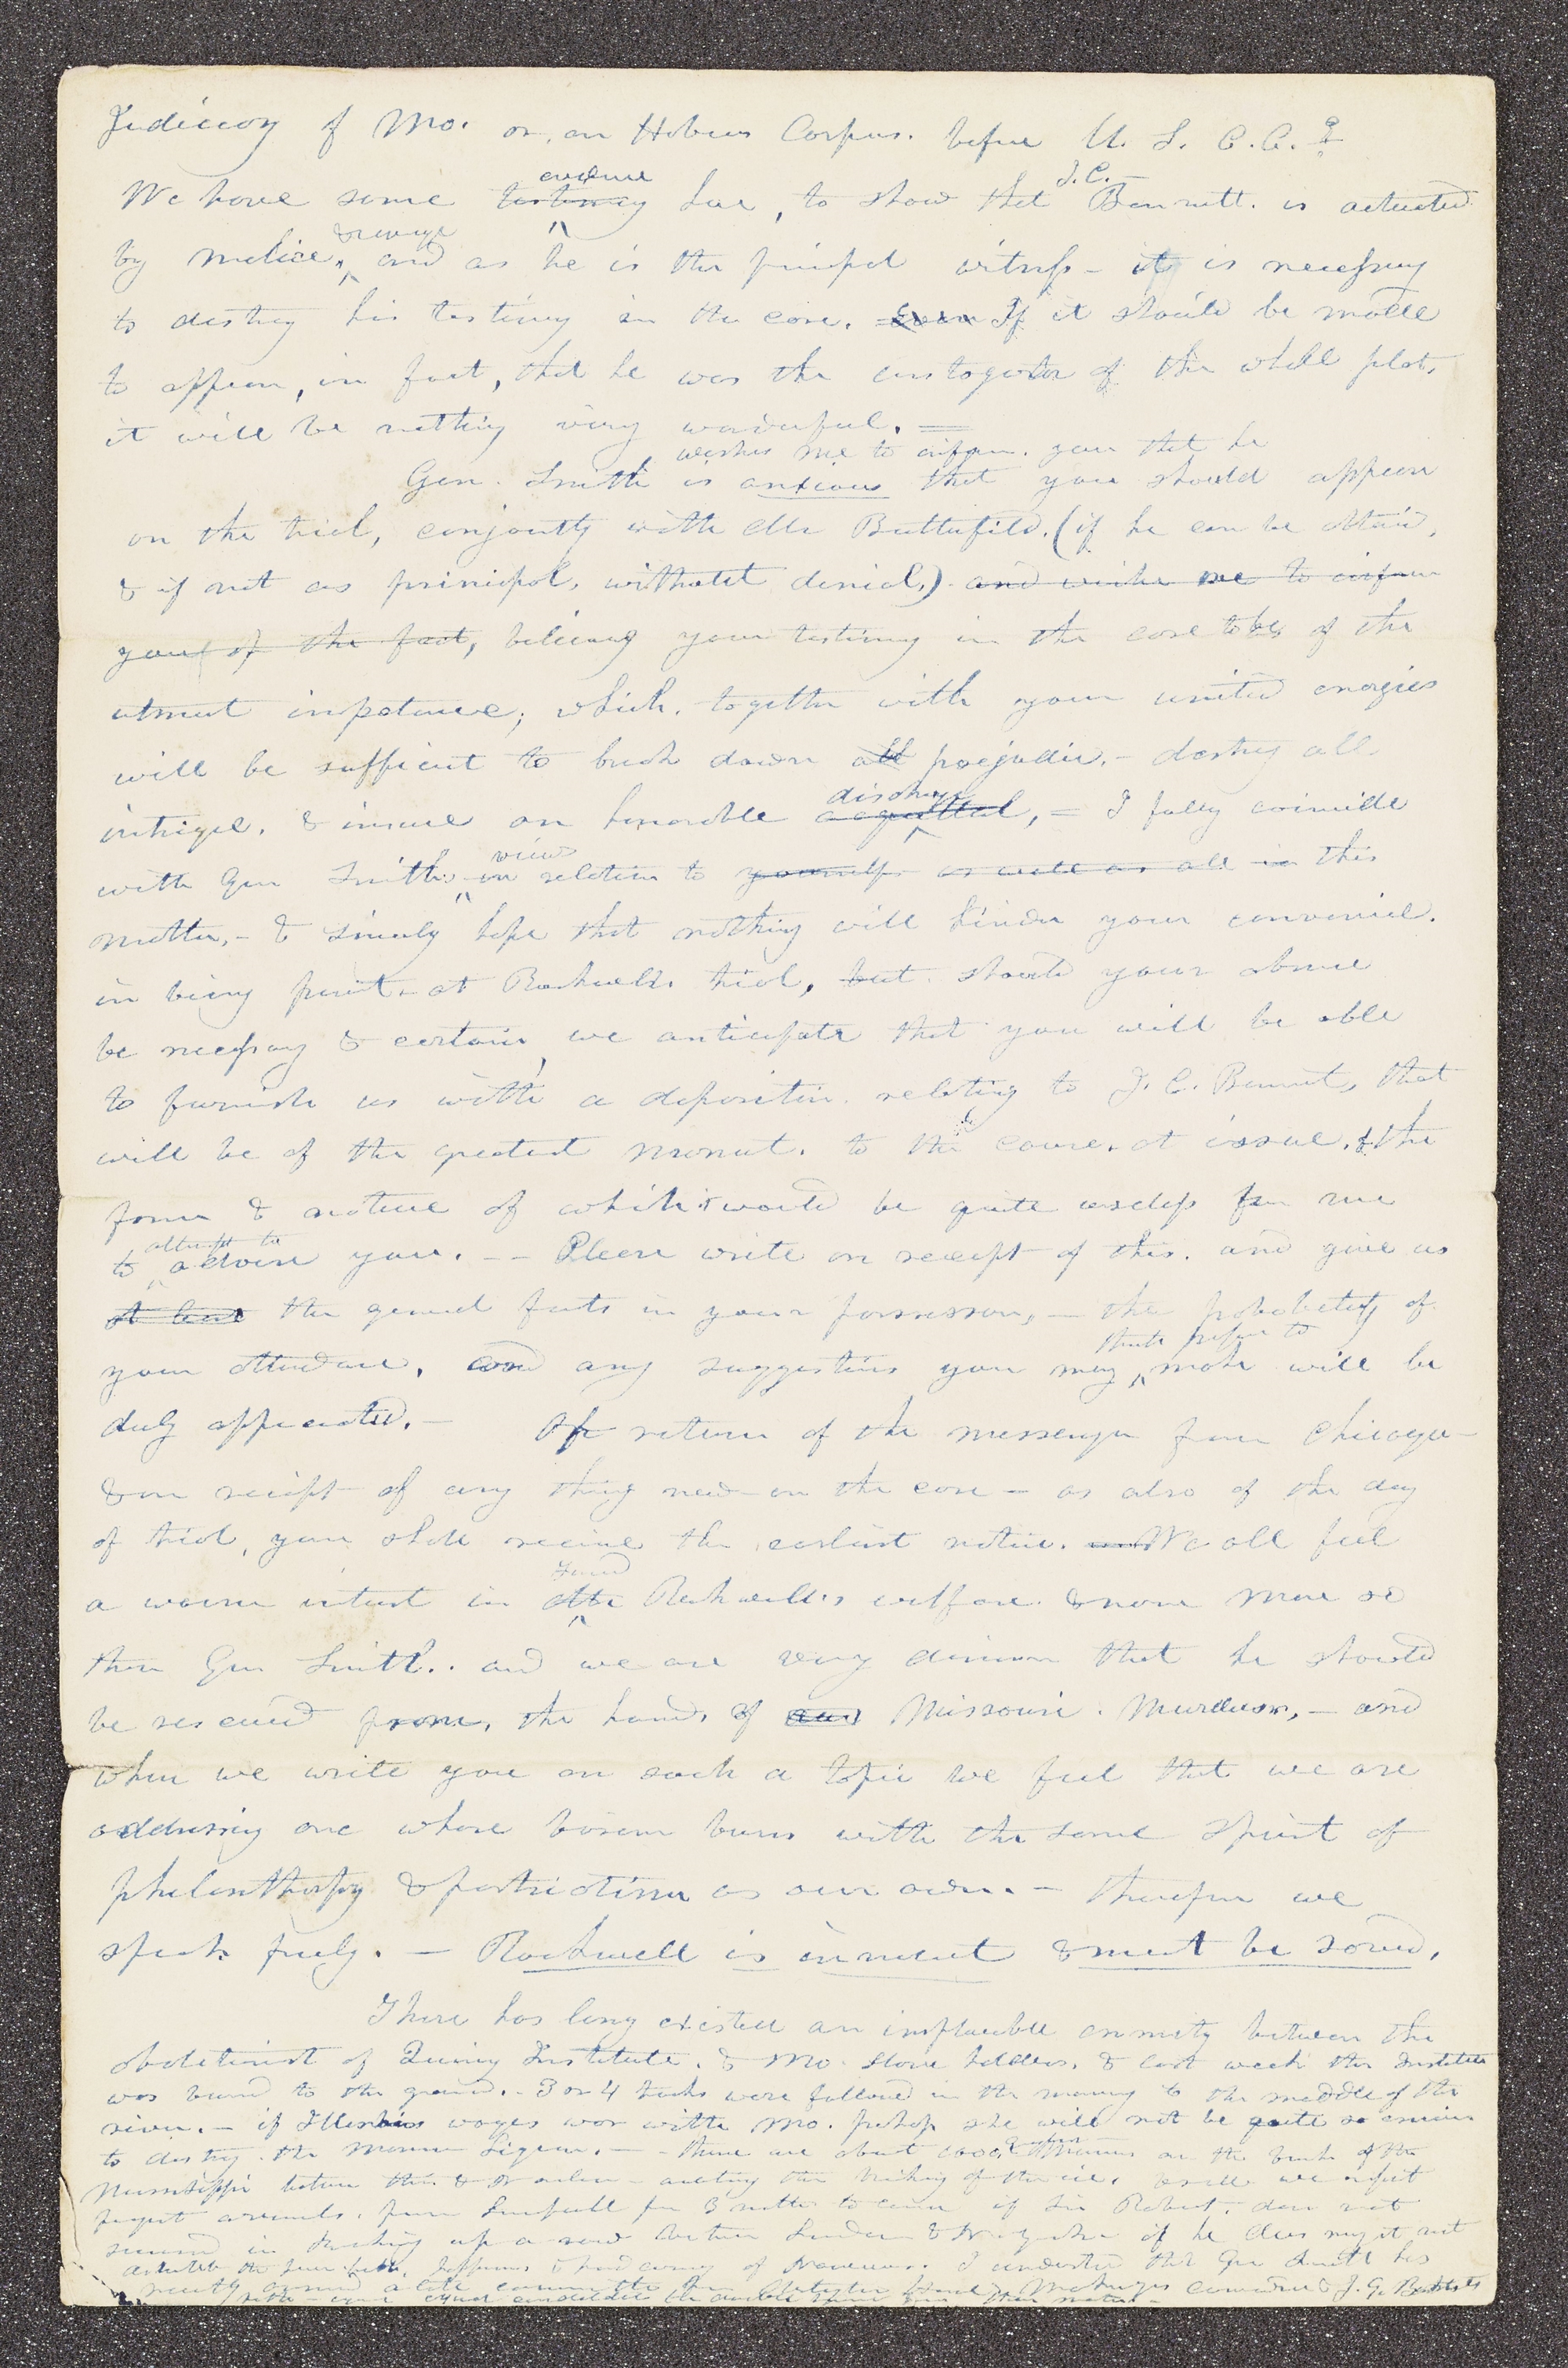 Judiciary of Mo. or, an Habeus Corpus. before U. S. C. C.?
evidence J. C.
We have some testimony here, to show that Bennett. is actuated
& revenge
by malice, and as he is the principal witness - it is necessary
to destroy his testimony in the case. Even If it should be made
to appear, in fact, that he was the instogator of the whole plot,
it will be nothing very wonderful. =
wishes me to inform. you that he
Gen. Smith is anxious that you should appear
on the trial, conjointly with Mr Butterfield. (if he can be obtained,
& if not as principal, without denial,) and wishes me to inform
you of the fact, believing your testimony in the case to be of the
utmost importance; which. together with your united energies
will be sufficient to brush down all prejudice. - destroy all
discharge
intrigue. & insure an honorable acquittal, = I fully coincide
views
with Gen Smiths in relation to yourself as well as all in this
matter. - & sincerely hope that nothing will hinder your convenience.
in being present at Rockwells trial, but should your absence
be necessary & certain, we anticipate that you will be able
to furnish us with a deposition relating to J. C. Bennet, that
will be of the greatest moment. to the cause. at issue. & the
form & nature of which would be quite useless for me
attempt to
to advise you. -- Please write on receipt of this. and give us
at least the general facts in your possession, - the probability of
think proper to
your attendance, and any suggestions you may make will be
duly appreciated. - On return of the messenger from Chicago -
& on receipt of any thing new on the case - as also of the day
of trial, you shall receive the earliest notice. We all feel
friend
a warm interest in Mr Rockwell's welfare & none more so
than Gen Smith.. and we are very anxious that he should
be rescued from, the hands of Missouri. Murderers, - and
when we write you on such a topic we feel that we are
addressing one whose bosom burns with the same spirit of
philanthropy & patriotism as our own. - therefore we
speak freely. - Rockwell is innocent & must be saved.
There has long existed an implacable enmity between the
abolitionist of Quincy Institute. & Mo. slave holders. & last week the Institute
was burned to the ground. - 3 or 4 tracks were followed in the morning to the middle of the
river. - if Illinois wages war with Mo. perhaps she will not be quite so anxious
to destroy the Mormon Legion. - - there are about on the bank of the
Mississippi between this & waiting the breaking of the ice. we expect
frequent arrivals. from for 3 months to come if Sir Robert. does not
succeed in up a new between if he does may it not
I understand that Gen Smith has
recently J. G. Bennett